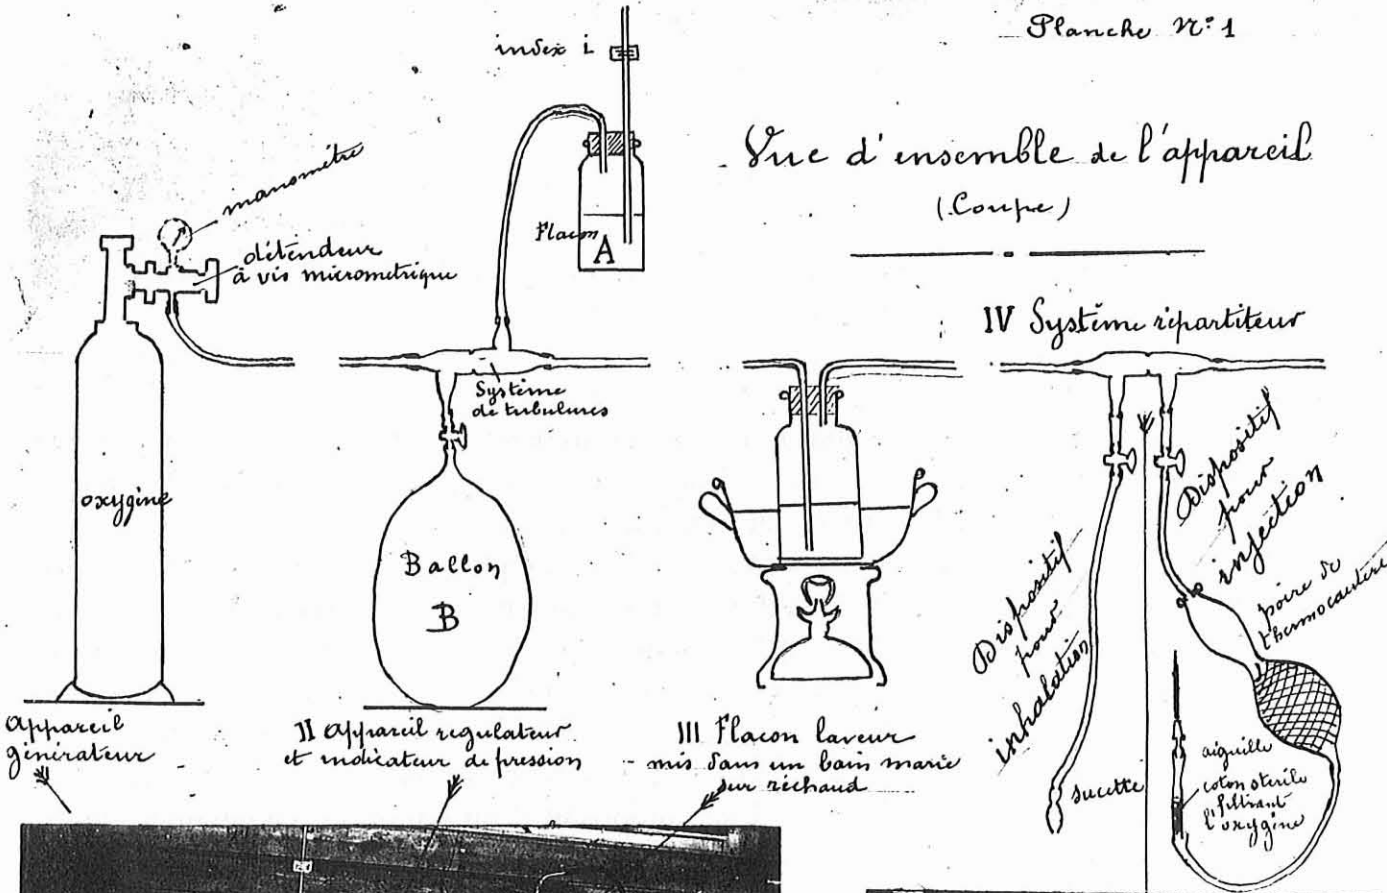 Planche N: 1
Vue d'ensemble de l'appareil
(Coupe)
index i
manomètre
détendeur
à vis micrometrique
Flacon
A
oxygène
Système
de tubulures
Ballon
B
IV Système répartiteur
Dispositif
pour
inhalation
Dispositif
pour
injection
poire de
thermocautère
sucette
aiguille
coton sterile
filtrant
l'oxygène
Appareil
générateur
II Appareil regulateur
et indicateur de pression
III Flacon laveur
mis dans un bain marie
sur réchaud